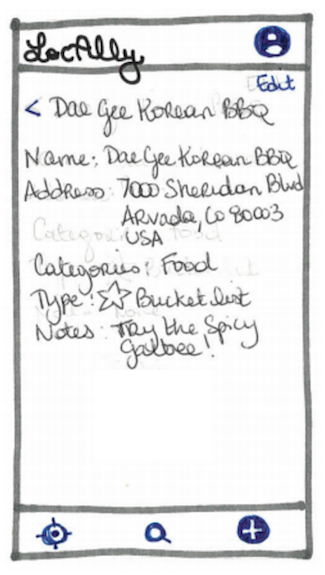 LocAlly
Edit
< Dae Gee Korean BBQ
Name: Dae Gee Korean BBQ
Address: 7000 Sheridan Blvd
Arvada, CO 80003
USA
Categories: Food
Type: ☆ Bucket list
Notes: Try the Spicy
galbee!